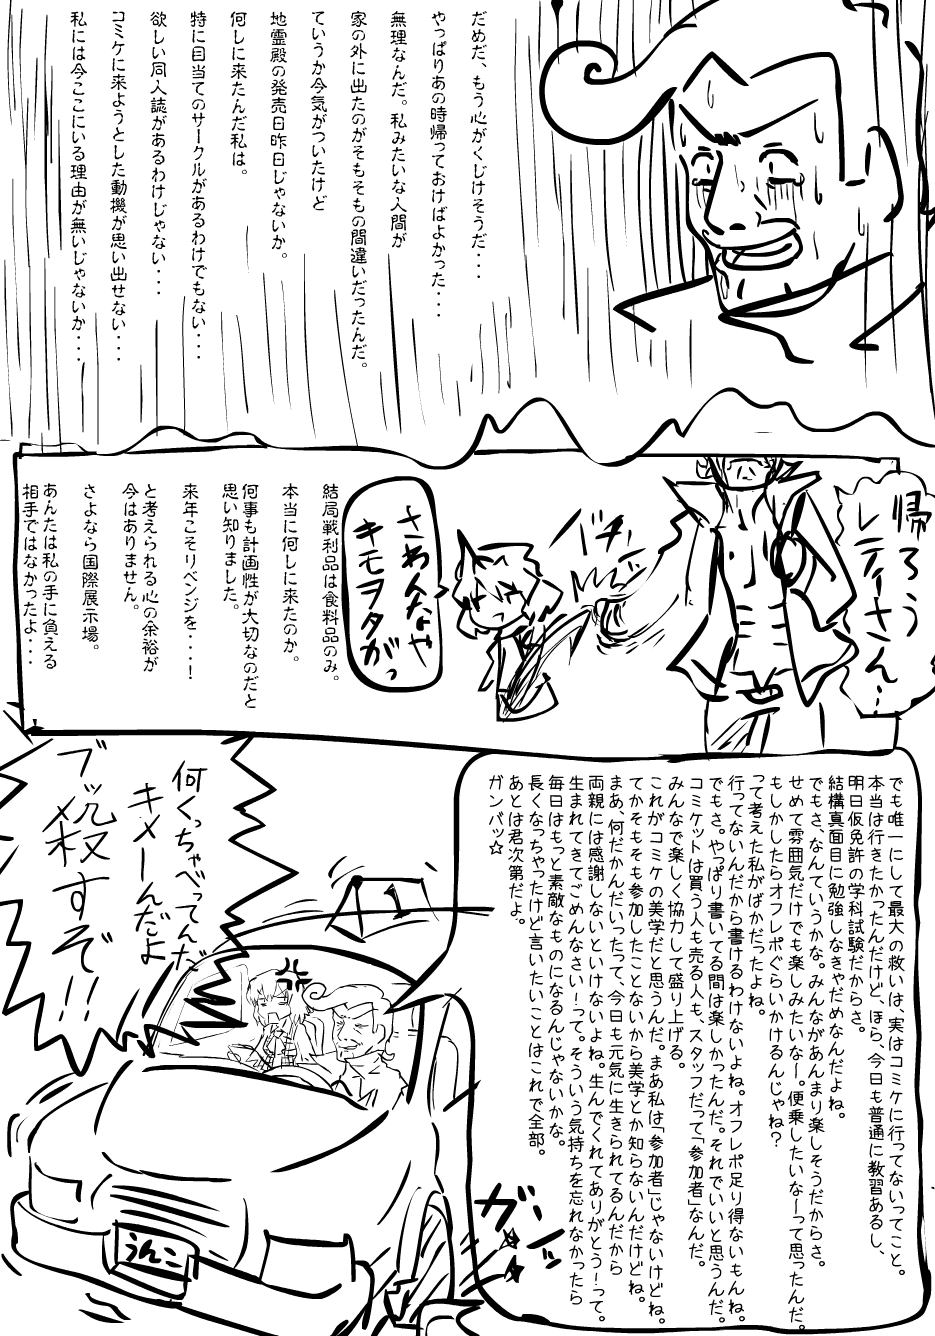 だめだ、もう心がくじけそうだ・・・
やっぱりあの時帰っておけばよかった・・・
無理なんだ。私みたいな人間が
家の外に出たのがそもそもの間違いだったんだ。
ていうか今気がついたけど
地霊殿の発売日昨日じゃないか。
何しに来たんだ私は。
特に目当てのサークルがあるわけでもない・・・
欲しい同人誌があるわけじゃない・・・
コミケに来ようとした動機が思い出せない・・・
私には今ここにいる理由が無いじゃないか・・・
帰ろう
レティーさん…
バチィ
さわんなや
キモヲタがっ
結局戦利品は食料品のみ。
本当に何しに来たのか。
何事も計画性が大切なのだと
思い知りました。
来年こそリベンジを・・・!
と考えられる心の余裕が
今はありません。
さよなら国際展示場。
あんたは私の手に負える
相手ではなかったよ・・・
でも唯一にして最大の救いは、実はコミケに行ってないってこと。
本当は行きたかったんだけど、ほら、今日も普通に教習あるし、
明日仮免許の学科試験だからさ。
結構真面目に勉強しなきゃだめなんだよね。
でもさ、なんていうかな。みんながあんまり楽しそうだからさ。
せめて雰囲気だけでも楽しみたいなー。便乗したいなーって思ったんだ。
もしかしたらオフレポぐらいかけるんじゃね?
って考えた私がばかだったよね。
行ってないんだから書けるわけないよね。オフレポ足り得ないもんね。
でもさ。やっぱり書いてる間は楽しかったんだ。それでいいと思うんだ。
コミケットは買う人も売る人も、スタッフだって「参加者」なんだ。
みんなで楽しく協力して盛り上げる。
これがコミケの美学だと思うんだ。まあ私は「参加者」じゃないけどね。
てかそもそも参加したことないから美学とか知らないんだけどね。
まあ、何だかんだいったって、今日も元気に生きられてるんだから
両親には感謝しないといけないよね。生んでくれてありがとう!って。
生まれてきてごめんなさい!って。そういう気持ちを忘れなかったら
毎日はもっと素敵なものになるんじゃないかな。
長くなっちゃったけど言いたいことはこれで全部。
あとは君次第だよ。
ガンバッ☆
何くっちゃべってんだ
キメーんだよ
ブッ殺すぞ!!
ガンッ
うんこ